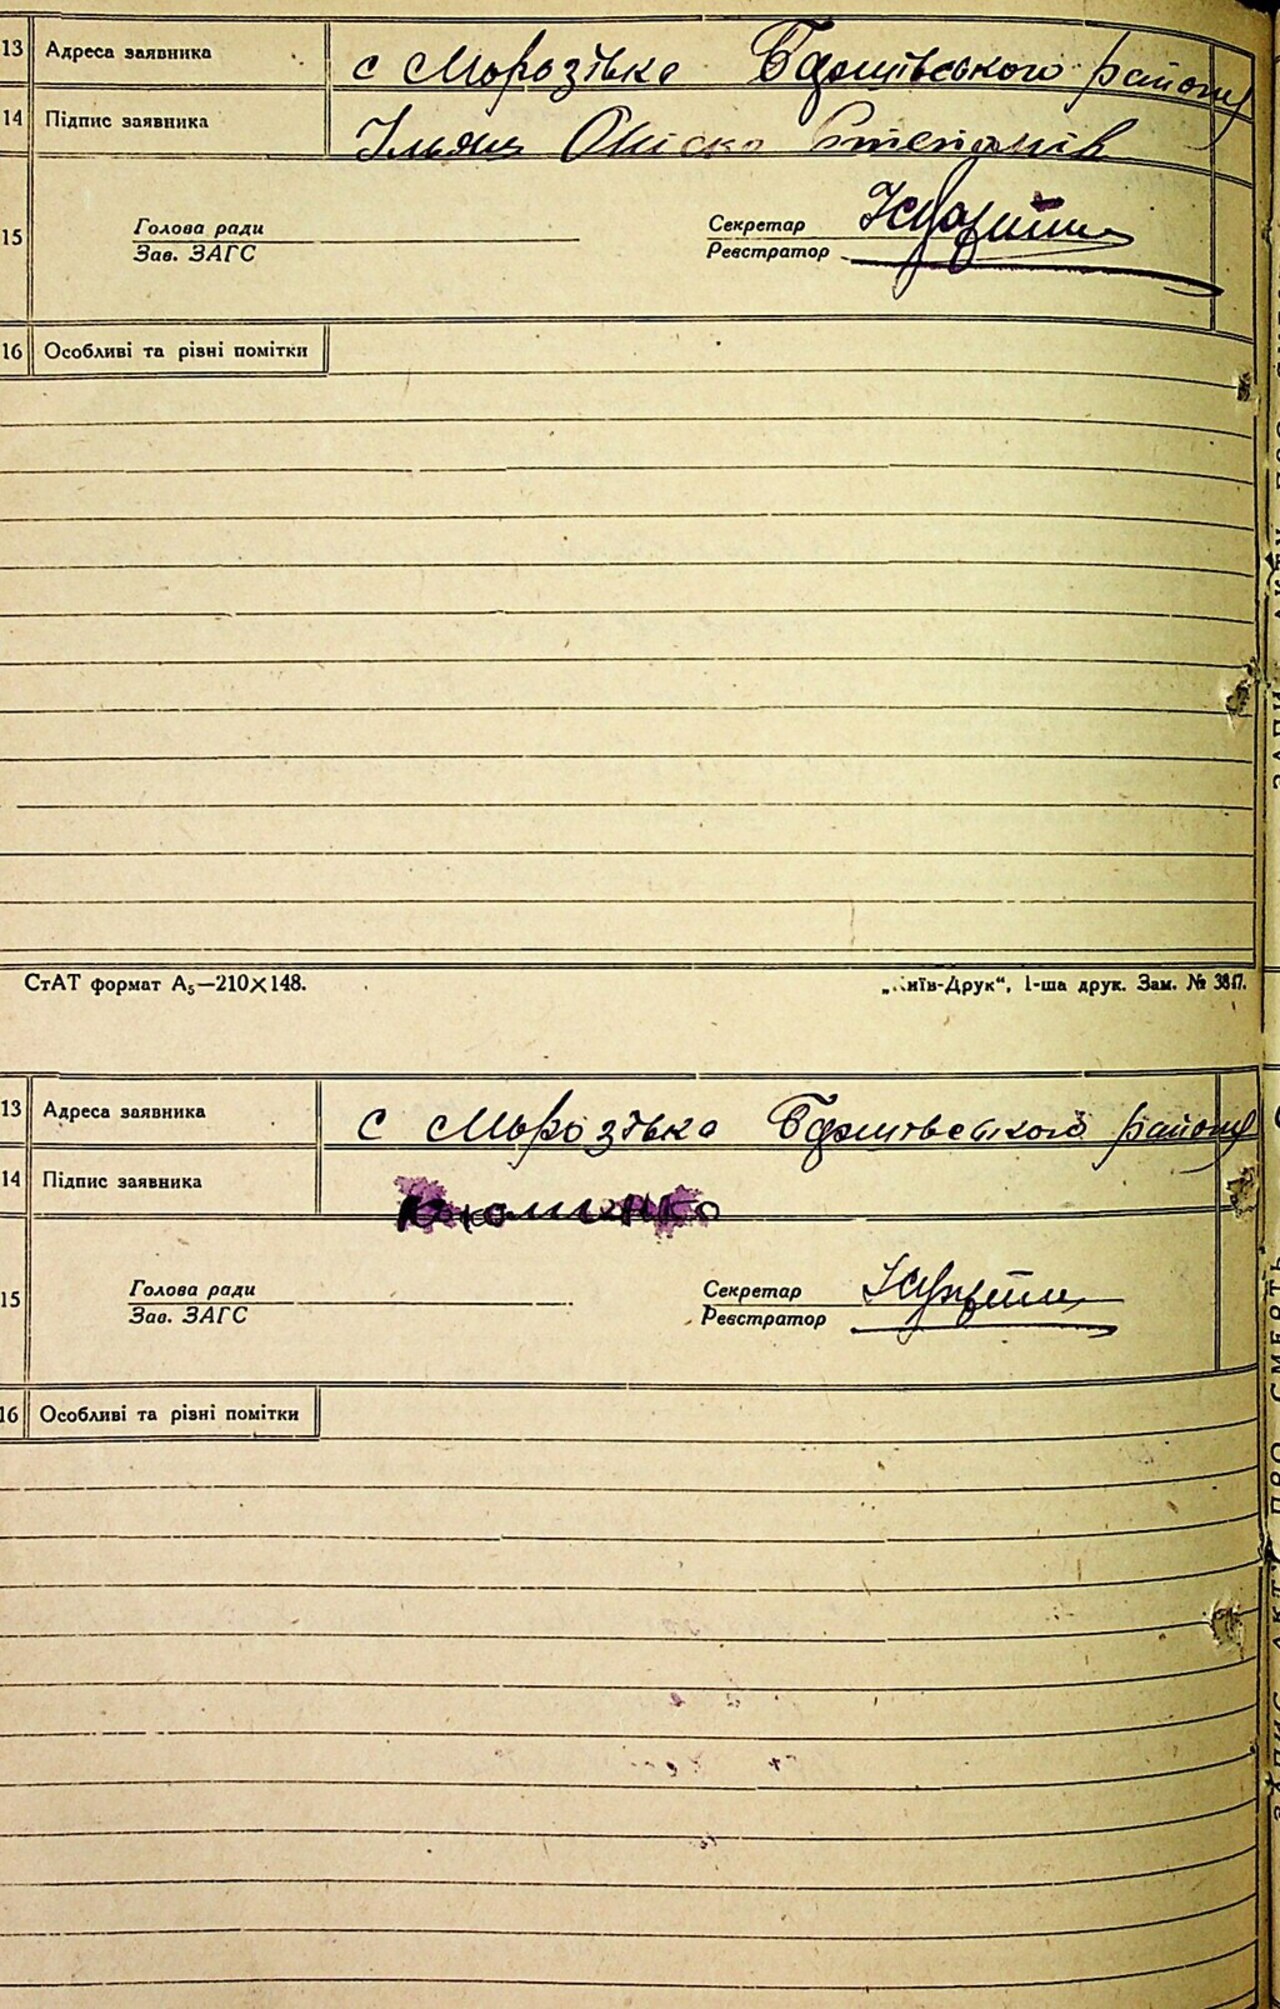 13 Адреса заявника с Морозівка Баришівського району
14 Підпис заявника Ільяш Оніско Степанів
15 Голова ради Секретар
Зав. ЗАГС Реєстратор
16 Особливі та різні помітки
СтАТ формат А5—210×148. „Київ-Друк“, 1-ша друк. Зам. № 3817.
13 Адреса заявника с Морозівка Баришівського району
14 Підпис заявника
15 Голова ради Секретар
Зав. ЗАГС Реєстратор
16 Особливі та різні помітки